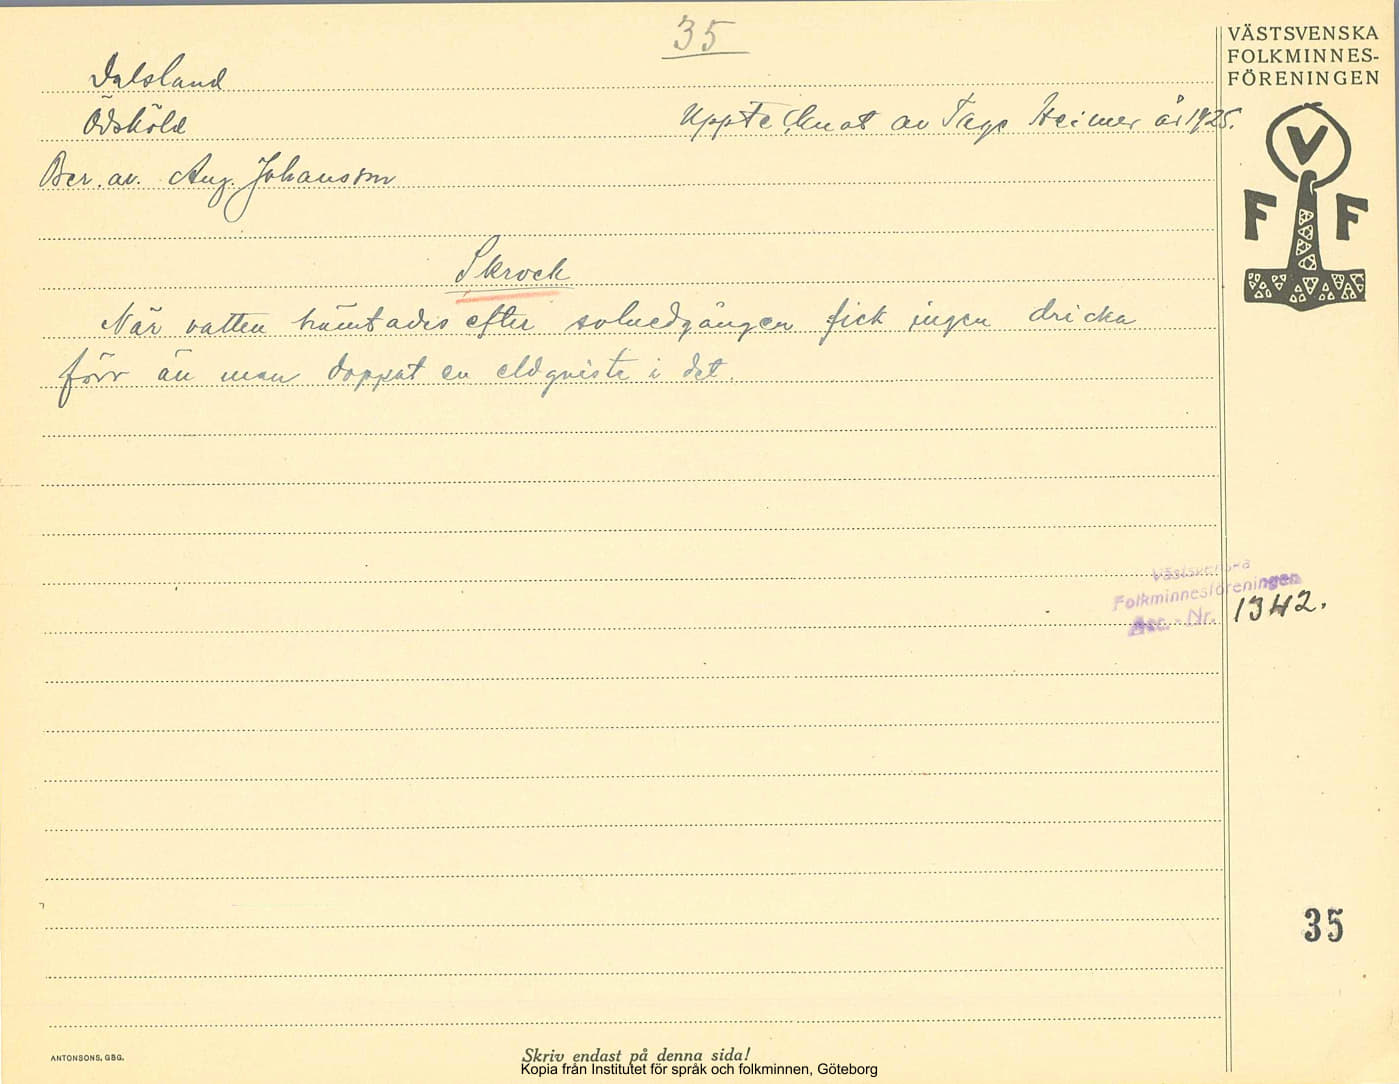 35
VÄSTSVENSKA
FOLKMINNES-
FÖRENINGEN
Dalsland
Ödsköld
Upptecknat av Tage Heimer år 1925.
Ber. av. Aug. Johansson
V
F F
Skrock
När vatten hämtades efter solnedgången fick ingen dricka
förr än man doppat en eldqviste i det.
Västsvenska
Folkminnesföreningen
Acc. - Nr. 1342.
35
ANTONSONS, GBG.
Skriv endast på denna sida!
Kopia från Institutet för språk och folkminnen, Göteborg